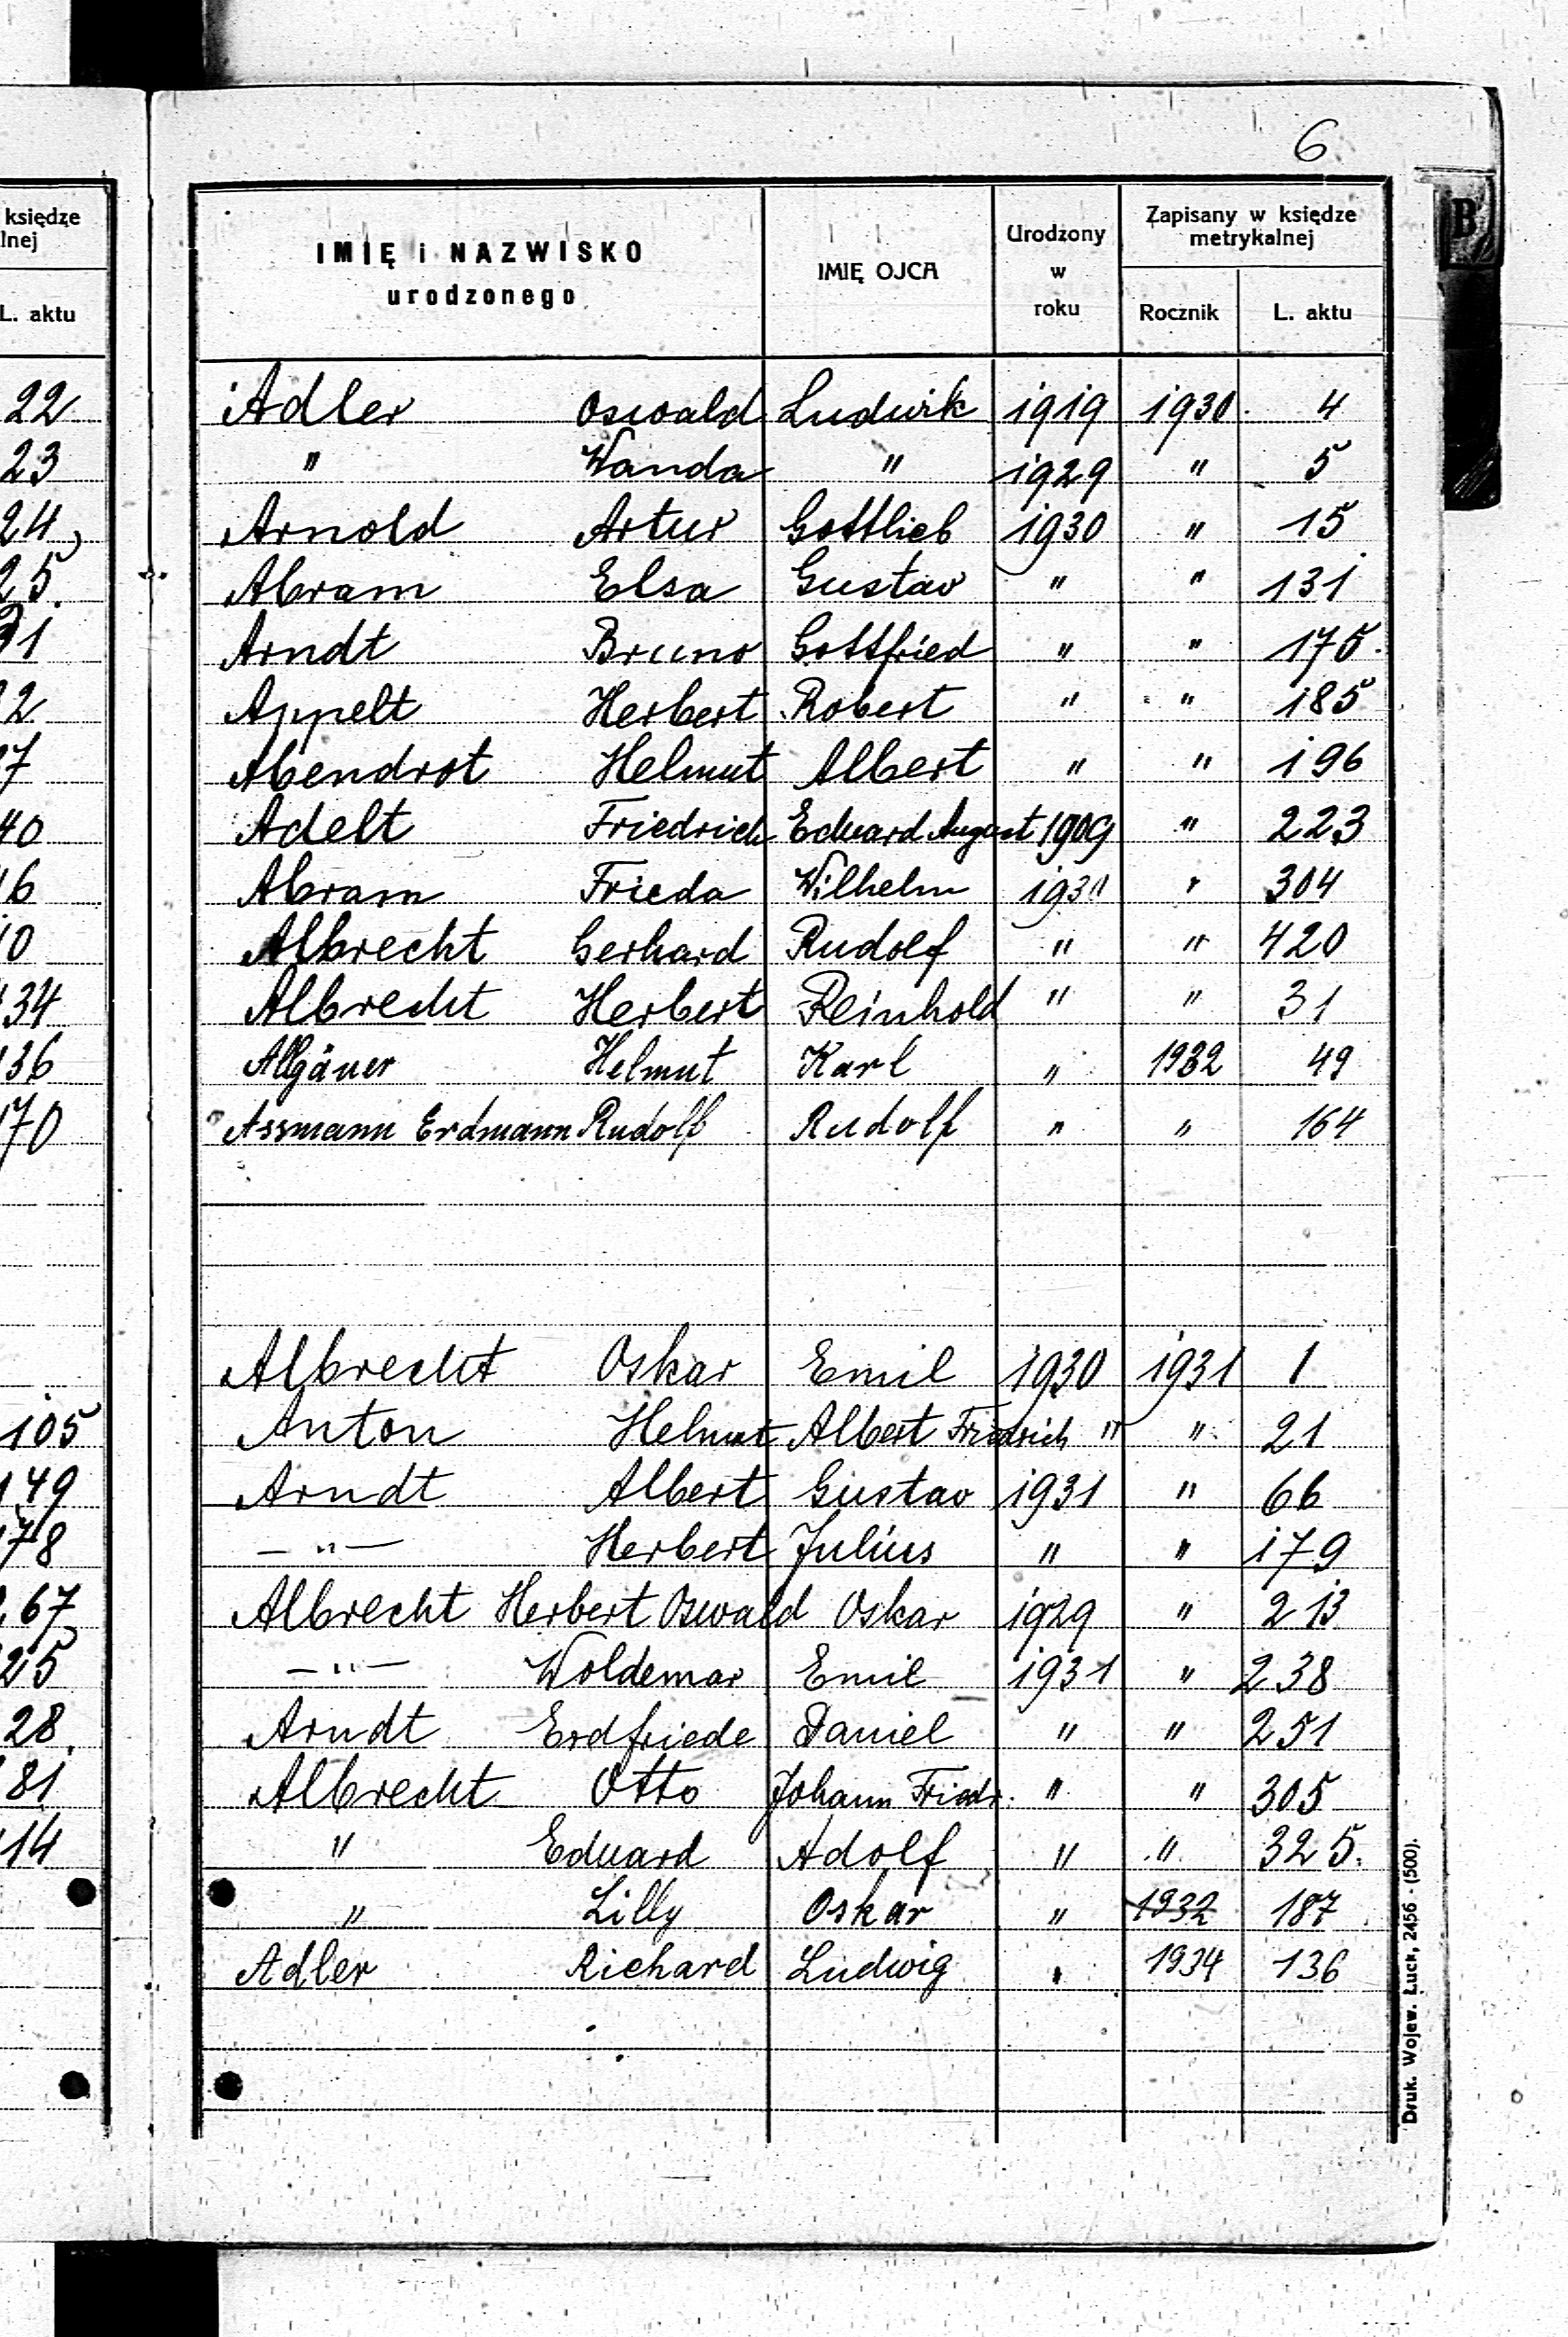 6
księdze
lnej
L. aktu
22
23
24
25.
31
2
7
40
16
10
134
136
170
105
149
178
267
25
28.
81
14
IMIĘ i NAZWISKO urodzonego IMIĘ OJCA Urodzony w roku Zapisany w księdze metrykalnej Rocznik L. aktu
B
Adler Oswald Ludwik 1919 1930. 4
" Wanda " 1929 " 5
Arnold Artur Gottlieb 1930 " 15
Abram Elsa Gustav " " 131
Arndt Bruno Gottfried " " 175.
Appelt Herbert Robert " " 185
Abendrot Helmut Albert " " 196
Adelt Friedrich Eduard August 1909 " 223
Abram Frieda Wilhelm 1930 " 304
Albrecht Gerhard Rudolf " " 420
Albrecht Herbert Reinhold " " 31
Allgäuer Helmut Karl " 1932 49
Assmann Erdmann Rudolf Rudolf " " 164
Albrecht Oskar Emil 1930 1931 1
Anton Helmut Albert Friedrich " " 21
Arndt Albert Gustav 1931 " 66
—"— Herbert Julius " " 179
Albrecht Herbert Oswald Oskar 1929 " 213
—"— Woldemar Emil 1931 " 238
Arndt Erdfriede Daniel " " 251
Albrecht Otto Johann Friedr. " " 305
" Eduard Adolf " " 325.
" Lilly Oskar " 1932 187
Adler Richard Ludwig " 1934 136
Druk. Wojew. Łuck, 2456 - (500).